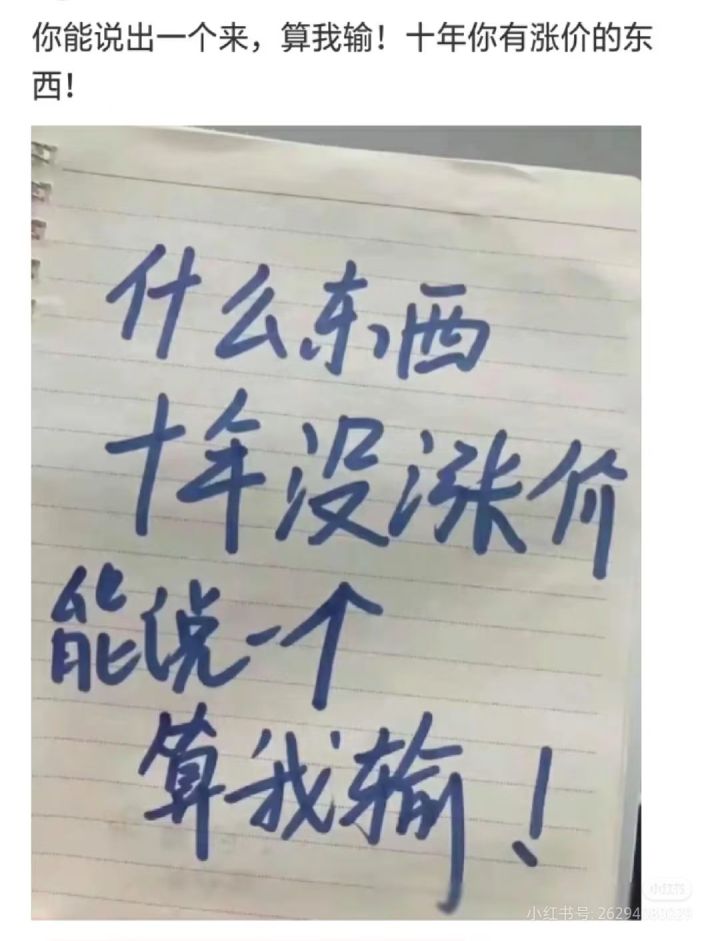 你能说出一个来，算我输！十年你有涨价的东
西！
什么东西
十年没涨价
能说一个
算我输！
小红书